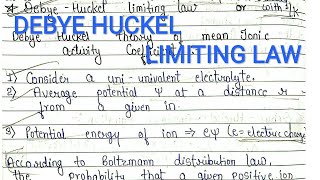 * Debye-Huckel limiting law or with 1/k
DEBYE HUCKEL
Debye Huckel theory of mean Ionic
activity Coefficient
LIMITING LAW
1) Consider a uni-univalent electrolyte.
2) Average potential ψ at a distance r
from a given ion
3) Potential energy of ion ⇒ eψ (e= electric charge
According to Boltzmann distribution law,
the probability that a given positive ion